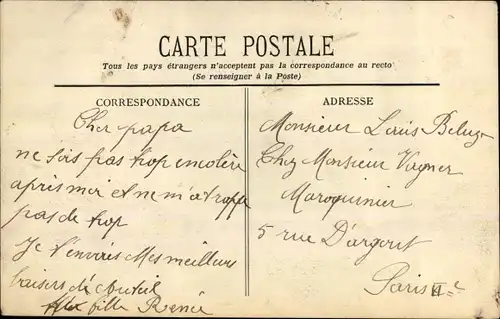 CARTE POSTALE
Tous les pays étrangers n'acceptent pas la correspondance au recto
(Se renseigner à la Poste)
CORRESPONDANCE
Cher papa
ne sois pas trop encolère
après moi et ne m'atrappe
pas de trop
Je t'envoies Mes meilleurs
baisers
fille Renée
ADRESSE
Monsieur Louis
Chez Monsieur Vagner
Maroquinier
5 rue D'argout
Paris